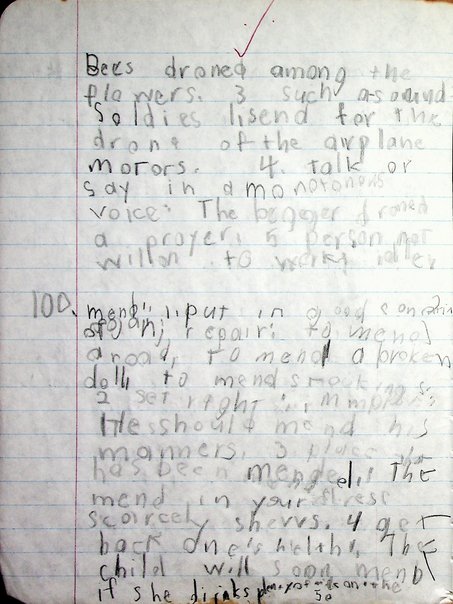 Bees droned among the
flowers. 3 such a sound:
Soldies lisend for the
drone of the airplane
motors. 4. talk or
say in a monotonous
voice: The begeger droned
a prayer. 5 person not
willon to work; idler
100. mend: 1. put in good
again; repair: to mend
a road, to mend a broken
doll, to mend stockings.
2 set right; improve:
He should mend his
manners. 3 place that
has been mended: The
mend in your dress
scarcely shows. 4 get
back one's health: The
child will soon mend
if she drinks